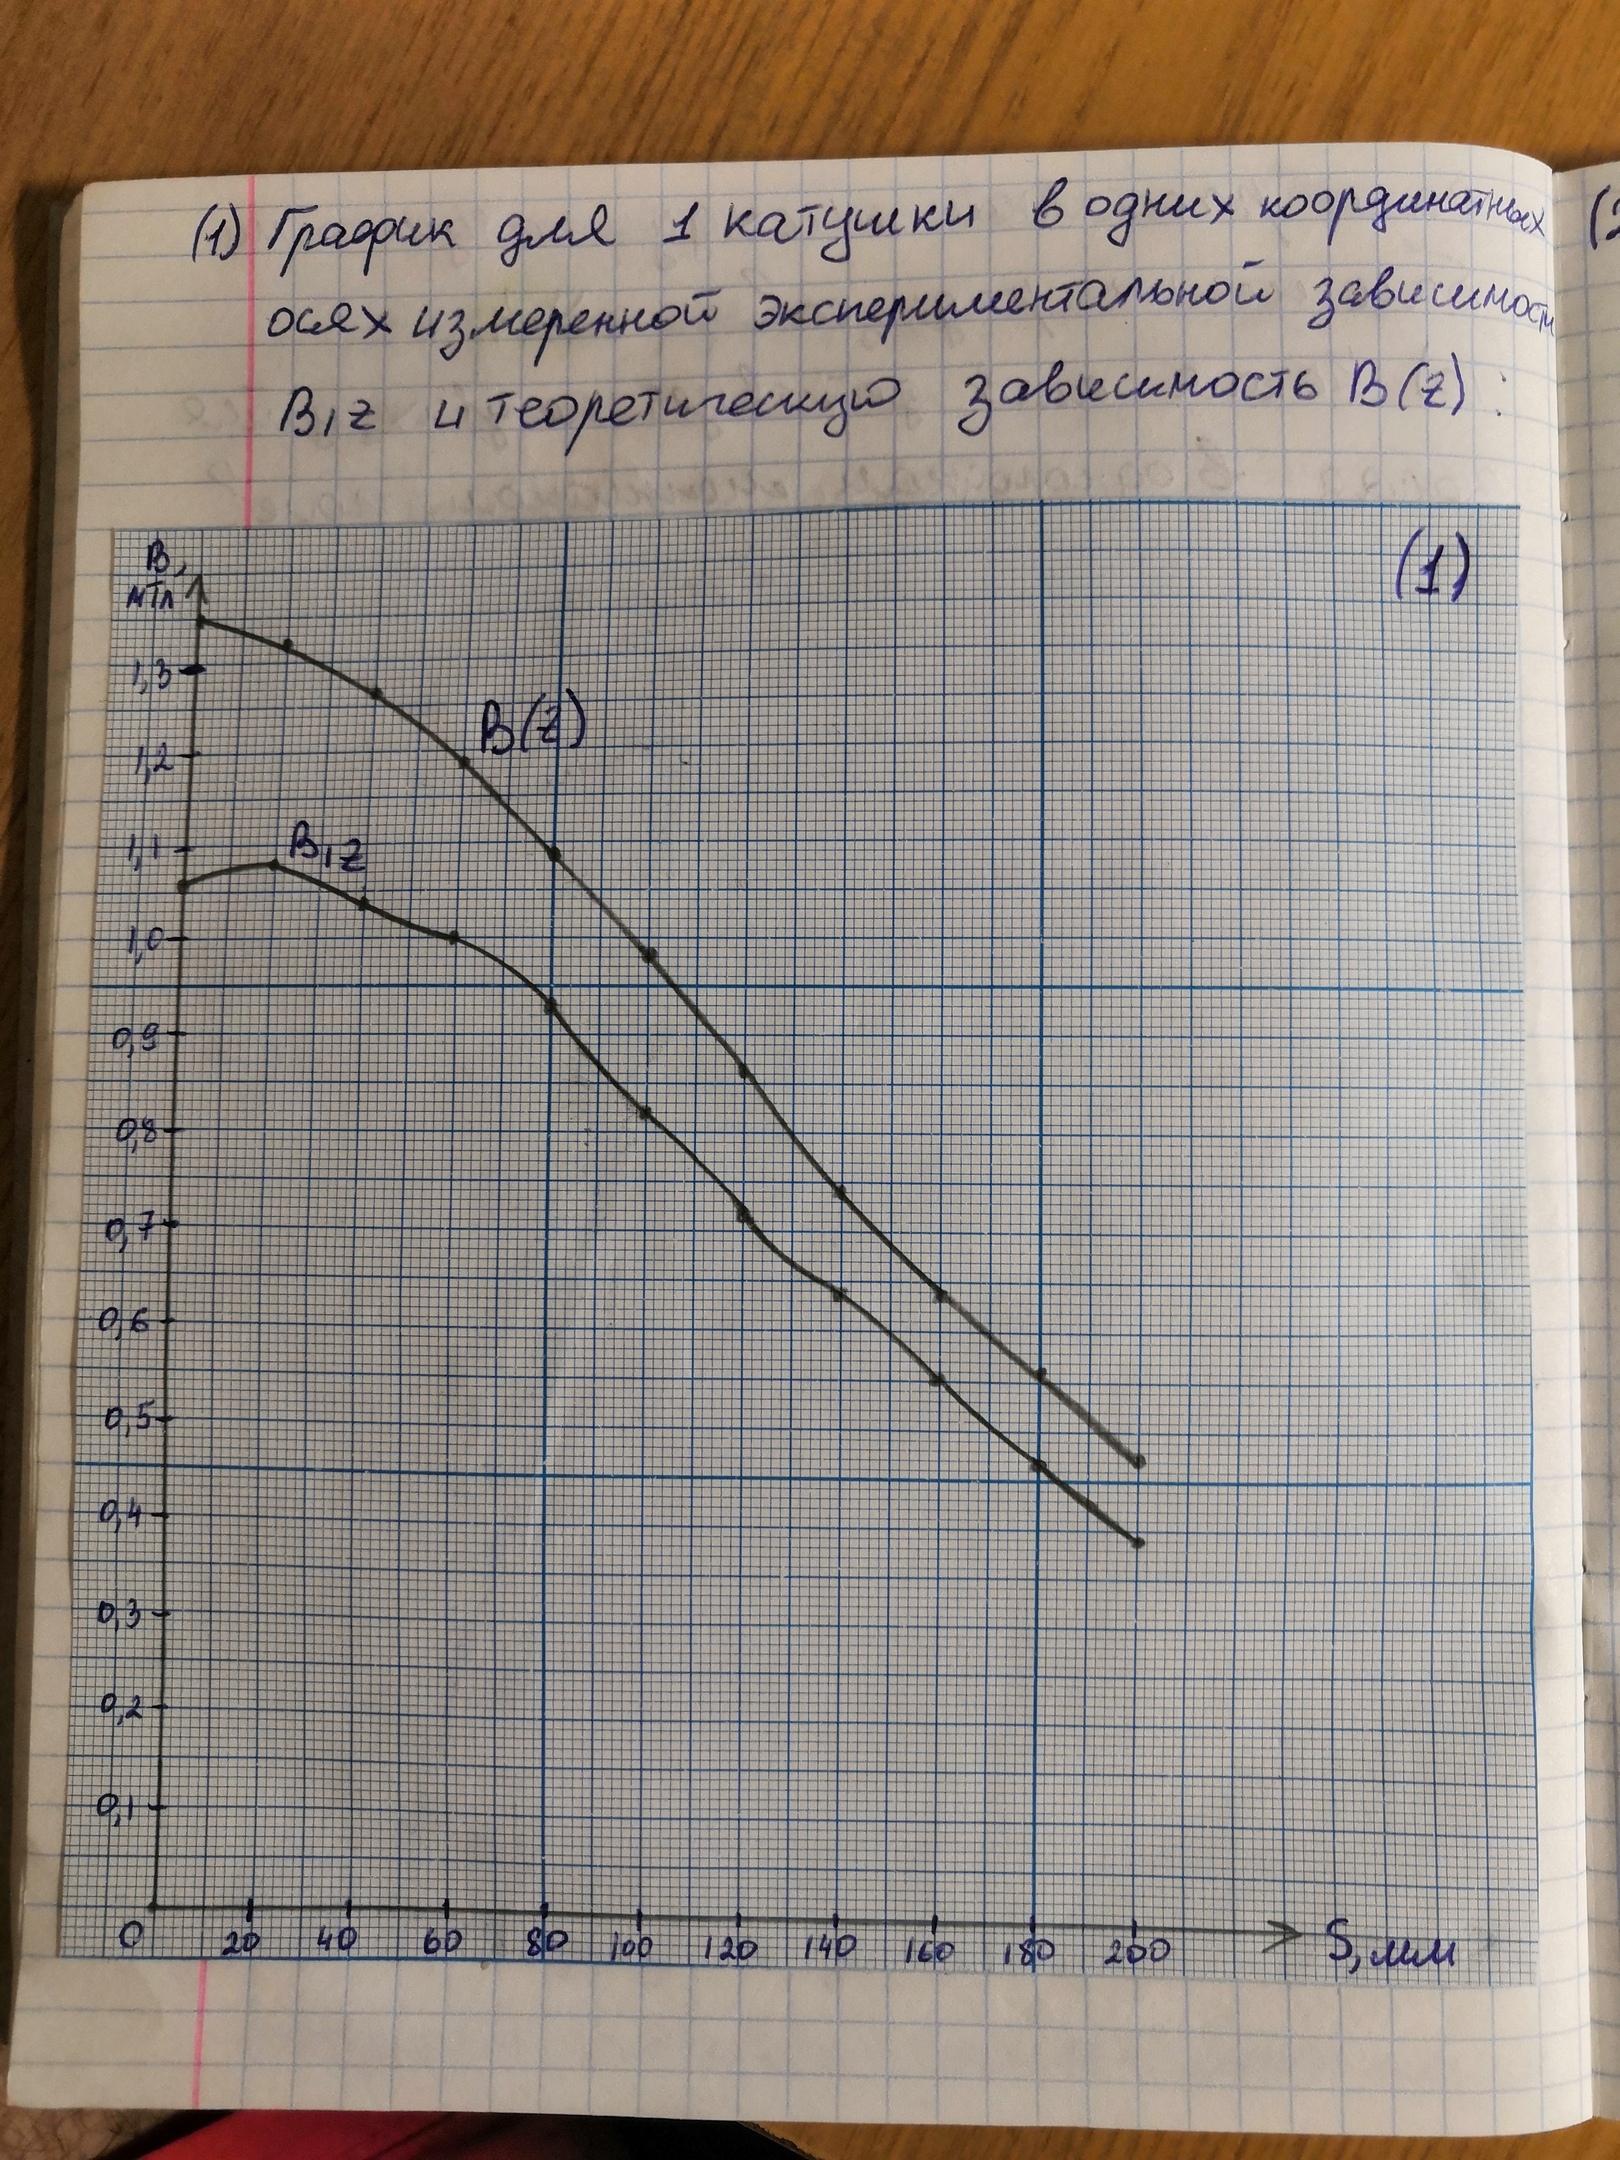 (1) График для 1 катушки в одних координатных
осях измеренной экспериментальной зависимости
B₁z и теоретическую зависимость B(z):
(1)
B,
мТл
1,3
B(z)
1,2
1,1
B₁z
1,0
0,9
0,8
0,7
0,6
0,5
0,4
0,3
0,2
0,1
0 20 40 60 80 100 120 140 160 180 200 S, мм